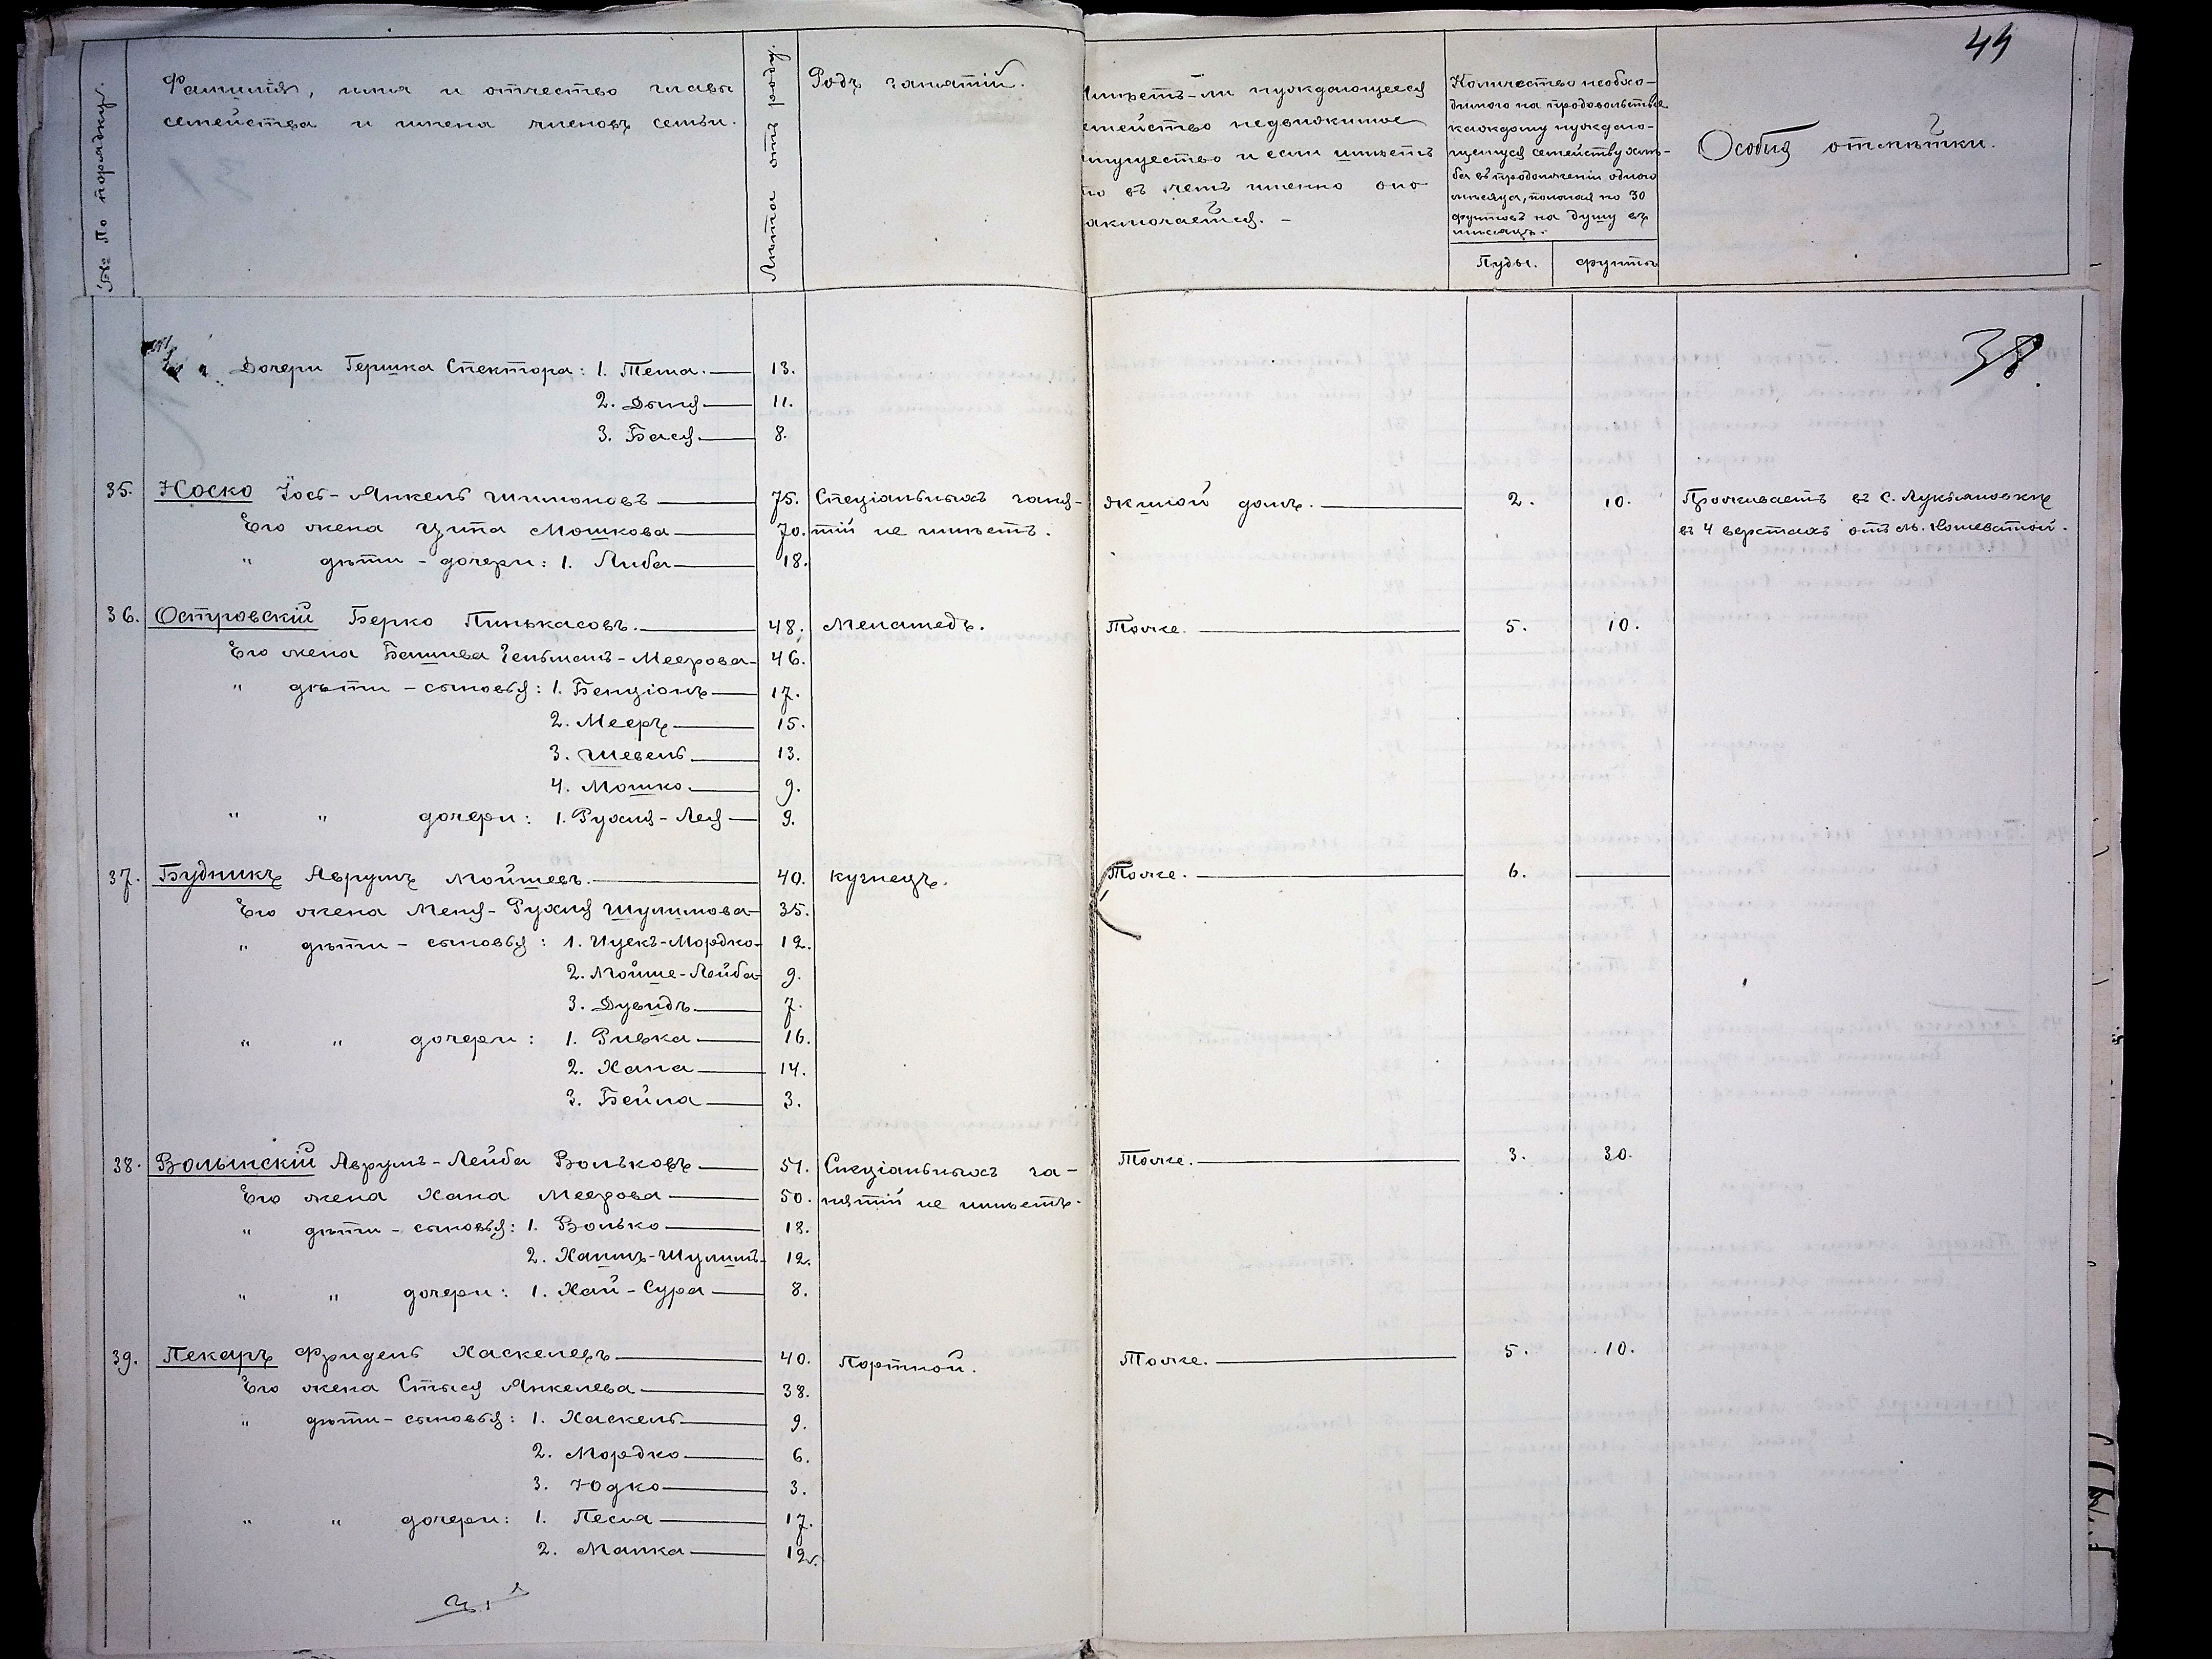 44
№ по порядку.
Фамилія, имя и отчество главы
семейства и имена членовъ семьи.
Лѣта отъ роду.
Родъ занятій.
Имѣетъ-ли нуждающееся
семейство недвижимое
имущество и если имѣетъ
то въ чемъ именно оно
заключается. -
Количество необхо-
димого на продовольствіе
каждому нуждаю-
щемуся семейству хлѣ-
ба въ продолженіи одного
мѣсяца, полагая по 30
фунтовъ на душу въ
мѣсяцъ.
Пуды. фунты
Особыя отмѣтки.
38
Дочери Гершка Спектора: 1. Тема. 13.
2. Дыня 11.
3. Бася 8.
35. Носко Іось-Янкель Шимоновъ 75. Спеціальныхъ заня- жилой домъ. 2. 10. Проживаетъ въ с. Лукьяновкѣ
Его жена Ципа Мошкова 70. тій не имѣетъ. въ 4 верстахъ отъ м. Кошеватой.
" дѣти - дочери: 1. Либа 18.
36. Островскій Берко Пинькасовъ. 48. Меламедъ. Тоже. 5. 10.
Его жена Башива Гельманъ-Меерова 46.
" дѣти - сыновья: 1. Бенціонъ 17.
2. Мееръ 15.
3. Шевель 13.
4. Мошко. 9.
" " дочери: 1. Рухля-Лея 9.
37. Будникъ Аврумъ Мойшевъ. 40. кузнецъ. Тоже. 6.
Его жена Меня-Рухля Шулимова 35.
" дѣти - сыновья: 1. Ицекъ-Мордко 12.
2. Мойше-Лейба 9.
3. Дувидъ 7.
" " дочери: 1. Ривка 16.
2. Хана 14.
3. Бейла 3.
38. Волынскій Аврумъ-Лейба Вольковъ 51. Спеціальныхъ за- Тоже. 3. 30.
Его жена Хана Меерова 50. нятій не имѣетъ.
" дѣти - сыновья: 1. Волько 18.
2. Хаимъ-Шулимъ 12.
" " дочери: 1. Хай-Сура 8.
39. Пекаръ Фридель Хаскелевъ 40. Портной. Тоже. 5. 10.
Его жена Стыся Янкелева 38.
" дѣти - сыновья: 1. Хаскель 9.
2. Мордко 6.
3. Юдко 3.
" " дочери: 1. Песля 17.
2. Малка 12.